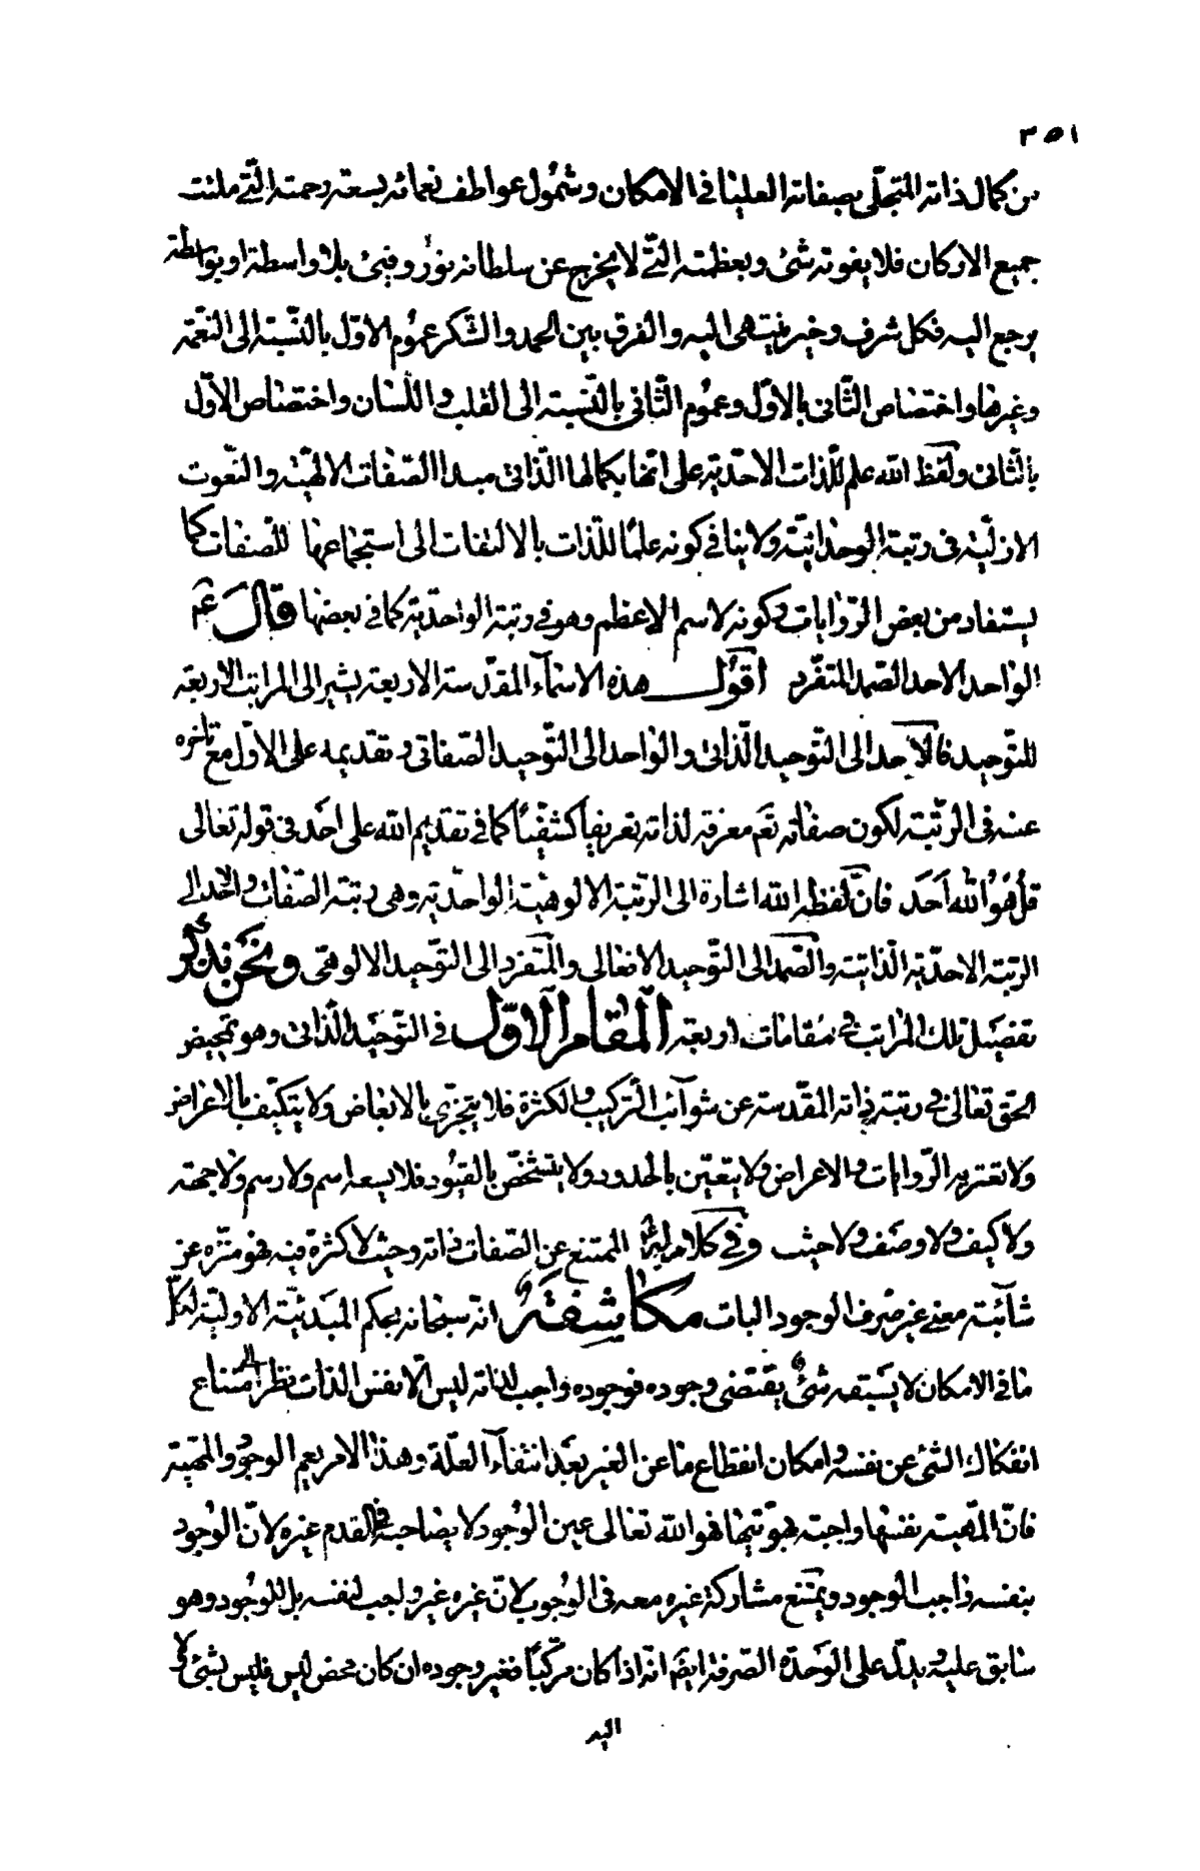 ٣٥١
من كمال ذاته المتجلّى بصفاته العليا فى الامكان وشمول عواطف نعمائه بسعته رحمته الّتى ملئت
جميع الاركان فلا يفوته شئ وبعظمته الّتى لا يخرج عن سلطانه نور وفيئ بلا واسطة او بواسطة
يرجع اليه فكل شرف وخير ينتهى اليه والفرق بين الحمد والشّكر عموم الاوّل بالنّسبة الى النّعمة
وغيرها واختصاص الثّانى بالاوّل وعموم الثّانى بالنّسبة الى القلب واللّسان واختصاص الاوّل
بالثّانى ولفظ الله علم للّذات الاحّديّة على انّها بكمالها الذّاتى مبدا الصّفات الالهيّة والنّعوت
الازليّة فى رتبة الوحدانيّة ولا ينافى كونه علمًا للذّات بالالتفات الى استجماعها للصّفات كما
يستفاد من بعض الرّوايات وكونه لاسم الاعظم وهو فى رتبة الواحديّة كما فى بعضها قال عم
الواحد الاحد الصّمد المتفرّد اقول هذه الاسمآء المقدّسة الاربعة يشير الى المراتب الاربعة
للتّوحيد فالاحد الى التّوحيد الذّاتى والواحد الى التّوحيد الصّفاتى وتقديمه على الاوّل مع تاخره
عنه فى الرّتبة لكون صفاته تعم معرفة لذاته تعريفاً كشفيّاً كما فى تقديم الله على احد فى قوله تعالى
قل هو الله احد فانّ لفظه الله اشارة الى الرّتبة الالوهيّة الواحديّة وهى رتبة الصّفات والاحد الى
الرتبة الاحديّة الذّاتيّة والصّمد الى التّوحيد الافعالى والمتفرد الى التّوحيد الالوهى ونحن نذكر
تفصيل تلك المراتب فى مقامات اربعة المقام الاوّل فى التّوحيد الذّاتى وهو تمحيض
الحق تعالى فى رتبة ذاته المقدّسة عن شوآئب التركيب والكثرة فلا يتجزّى بالابعاض ولا يتكيّف بالاغراض
ولا تعتريه الرّوايات والاعراض ولا يتعيّن بالحدود ولا يتشخّص بالقيود فلا يسعه اسم ولا رسم ولا جهة
ولا كيف ولا وصف ولا حيث وفى كلام الممتنع عن الصّفات ذاته وحيث لا كثرة فيه فهو منزّه عن
شآئبة معنى غير صرف الوجود البات مكاشفة انّه سبحانه بحكم المبدئيّة الاوليّة لكلّ
ما فى الامكان لا يسبقه شئ يقتضى وجوده فوجوده واجب لذاته ليس الّا نفس الذات نظرا الى امتناع
انفكاك الشئ عن نفسه وامكان انقطاع ما عن الغير بعد انتفآء العلّة وهذا الامر يعم الوجود والمهيّة
فانّ المّهية بنفسها واجبة بهويّتها فهو الله تعالى عين الوجود لا يصاحبه فى القدم غيره لانّ الوجود
بنفسه واجب الوجود ويمتنع مشاركة غيره معه فى الوجوب لانّ غيره غير واجب لنفسه بل للوجود وهو
سابق عليه ويدلّ على الوحدة الصّرفة ايضم انّه اذا كان مركّبا فغير وجوده ان كان محض ليس فليس بشئ لا
اليه